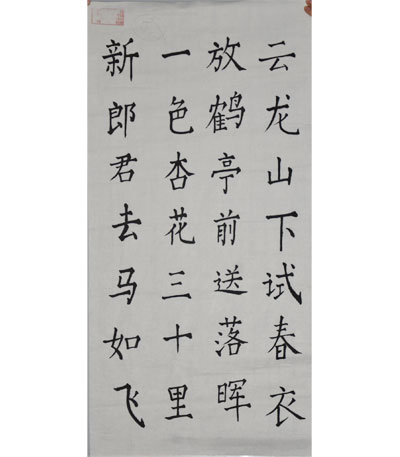 云龙山下试春衣
放鹤亭前送落晖
一色杏花三十里
新郎君去马如飞